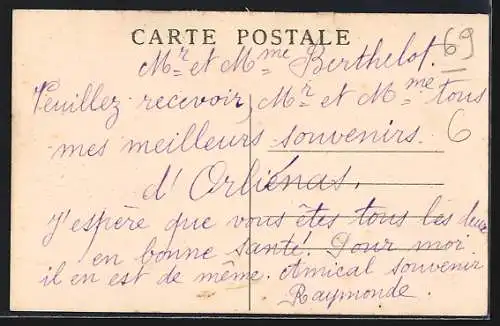 CARTE POSTALE
69
Mr et Mme Berthelot.
Veuillez recevoir, Mr et Mme tous
6
mes meilleurs souvenirs.
d'Orliénas.
J'espère que vous êtes tous les deux
en bonne santé. Pour moi
il en est de même. Amical souvenir
Raymonde.